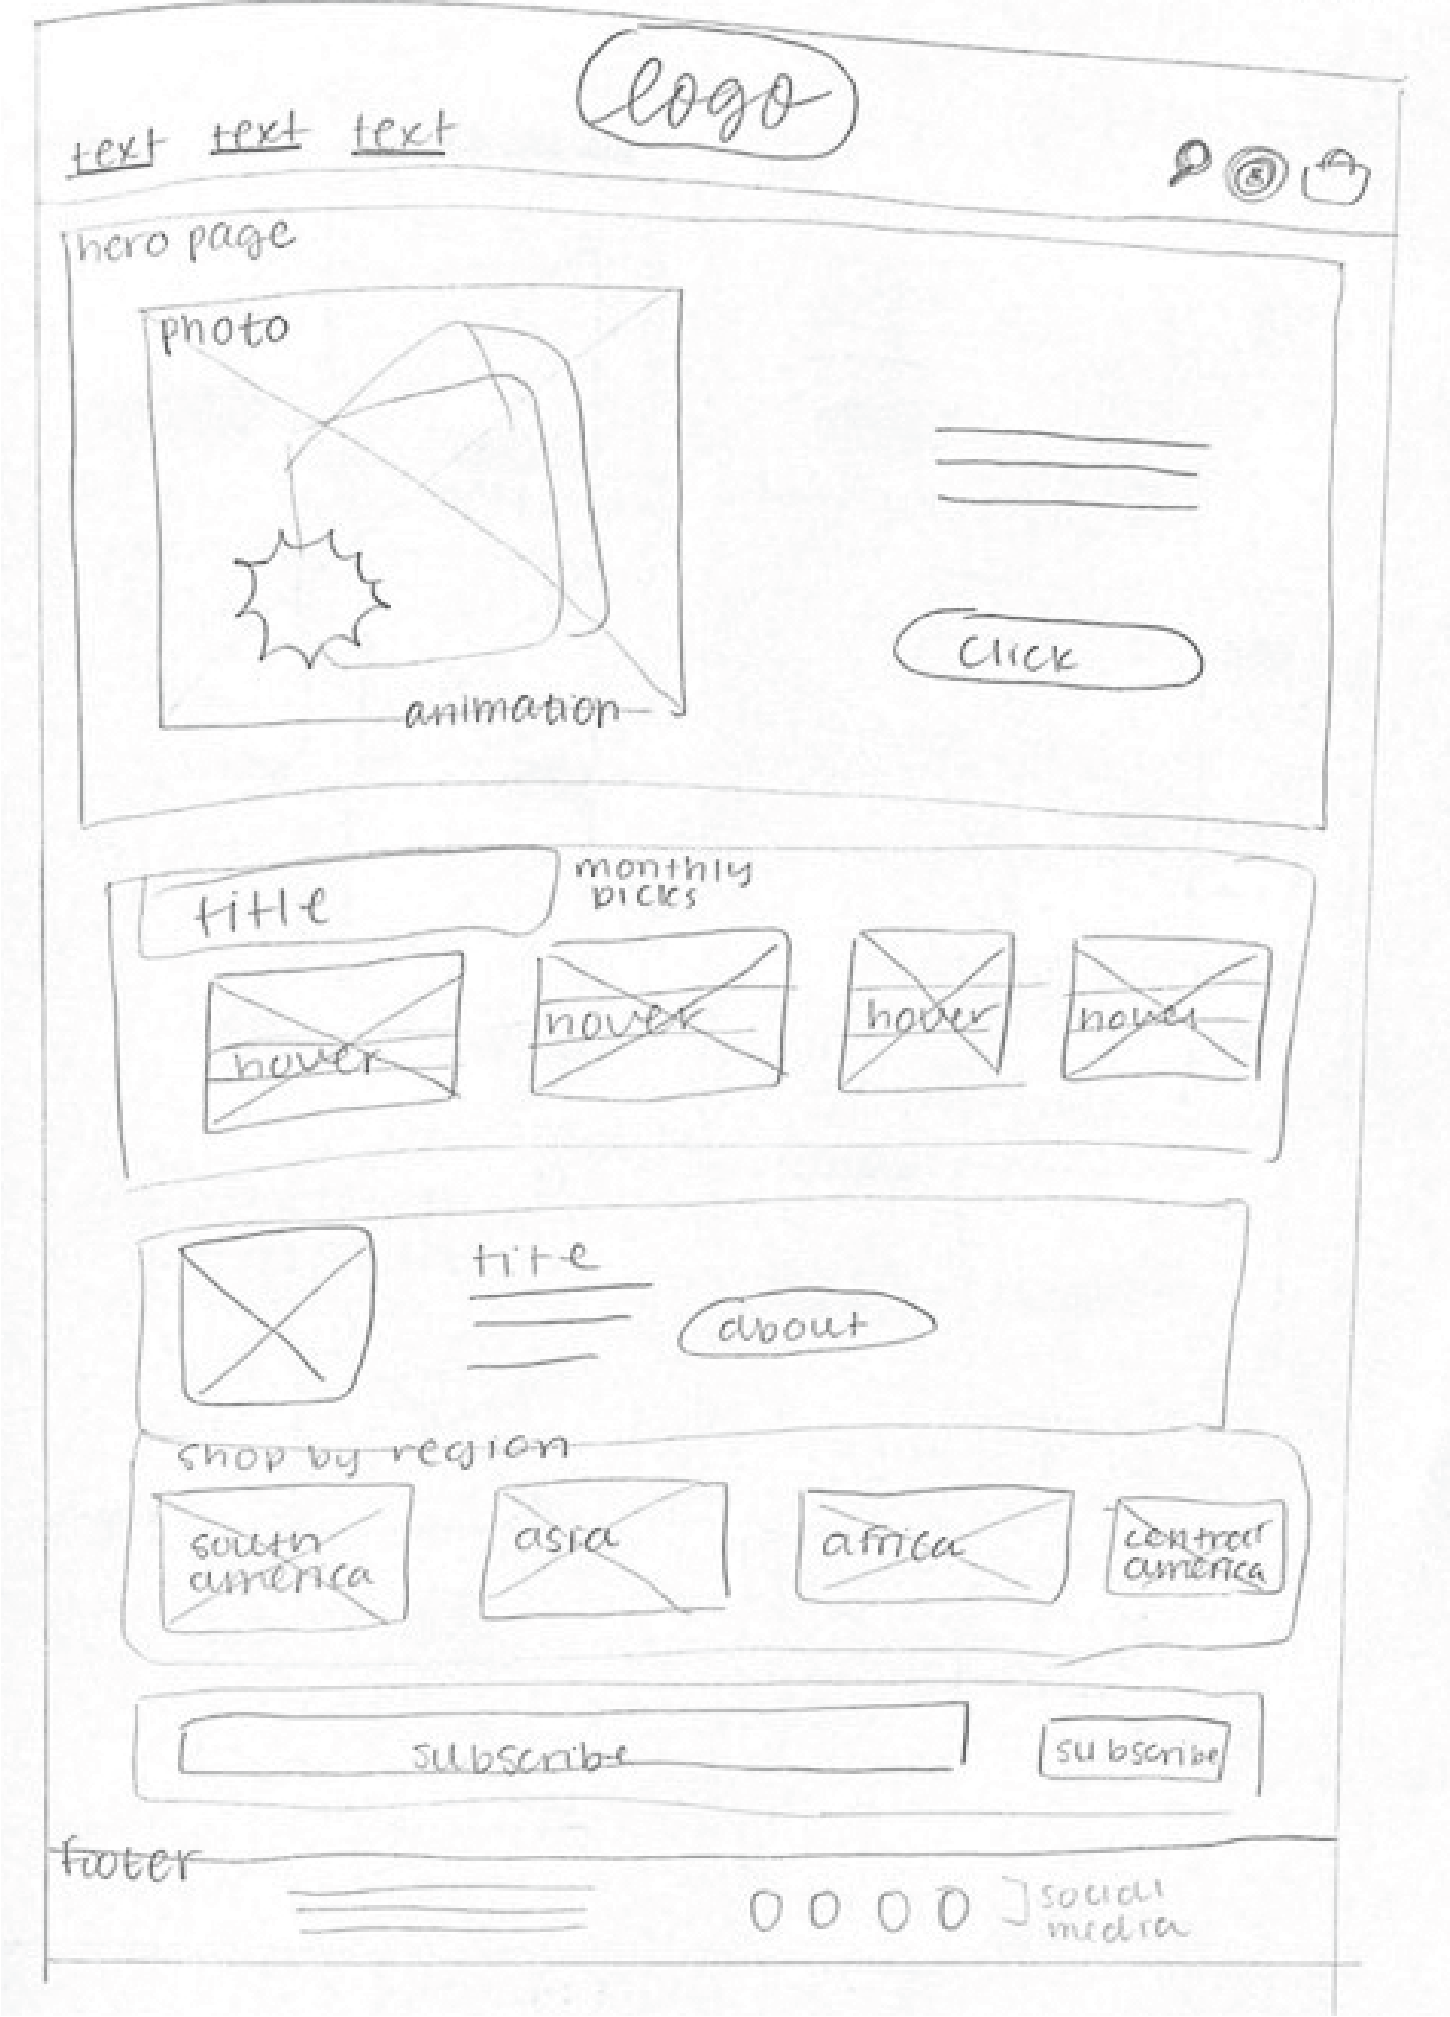 logo
text text text
hero page
photo
click
animation
title
monthly
picks
hover hover hover hover
tite
about
shop by region
south
america
asia
africa
central
america
subscribe subscribe
footer
social
media